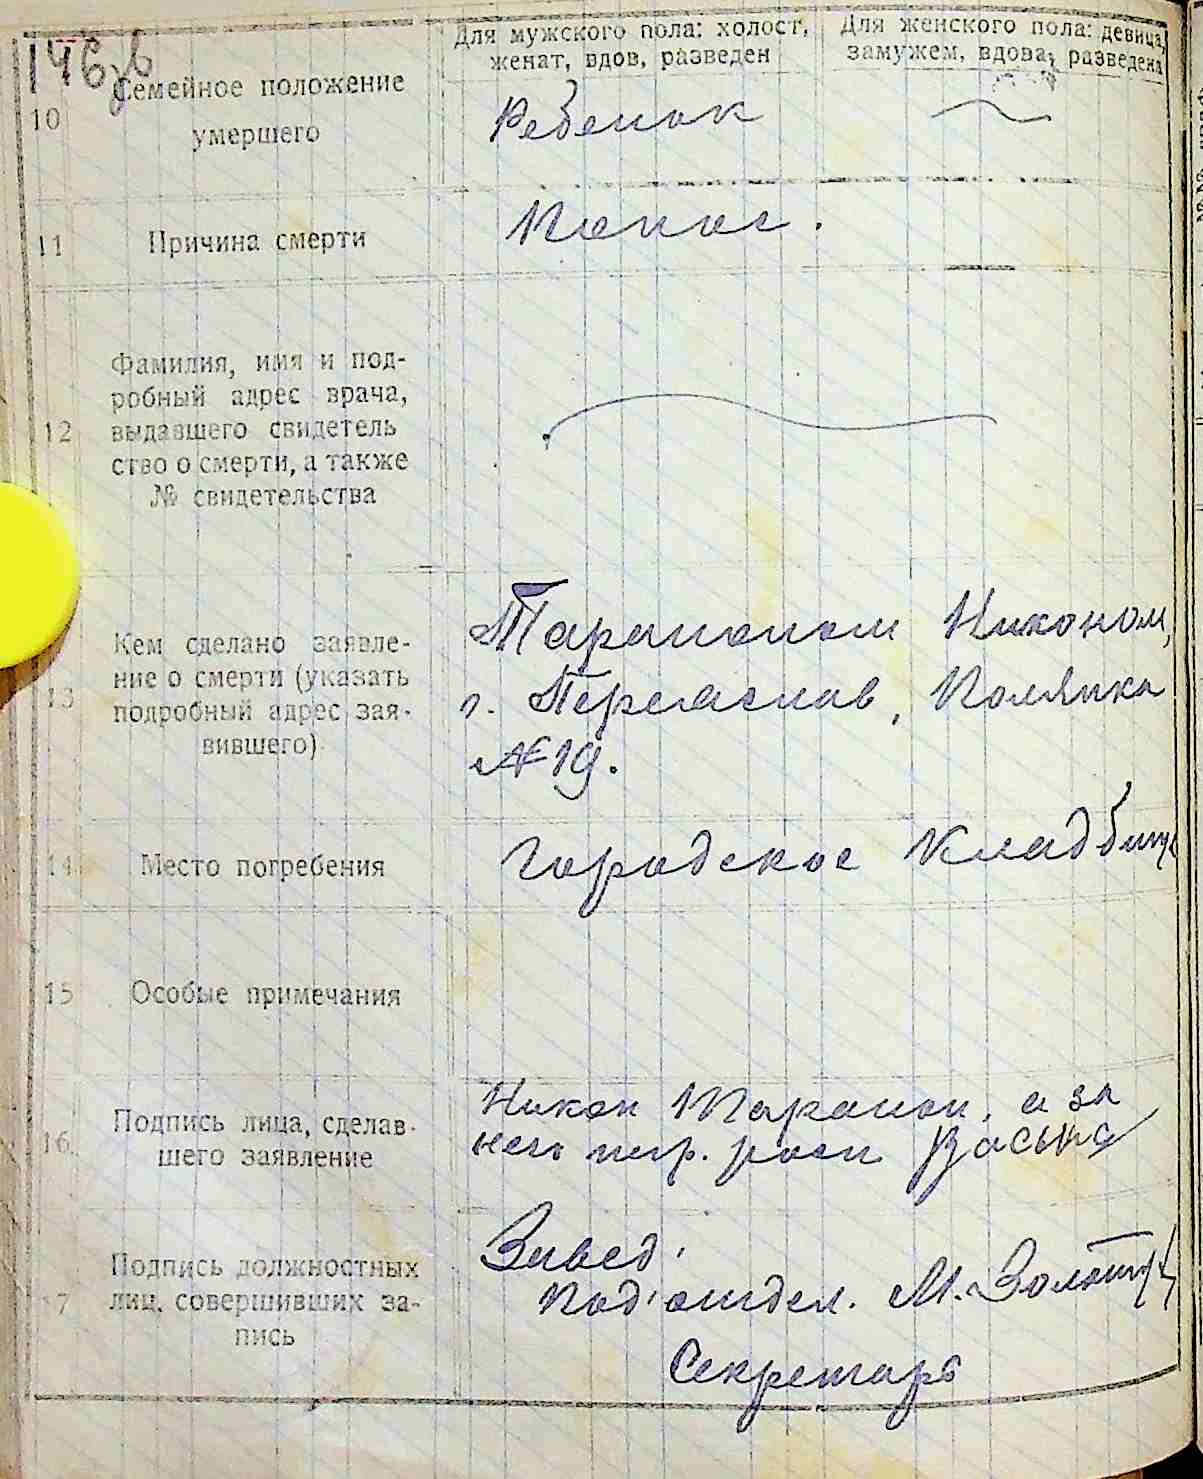 146зв
Для мужского пола: холост,
женат, вдов, разведен
Для женского пола: девица,
замужем, вдова, разведена
10
Семейное положение
умершего
Ребенок
11
Причина смерти
Понос.
12
Фамилия, имя и под-
робный адрес врача,
выдавшего свидетель
ство о смерти, а также
№ свидетельства
13
Кем сделано заявле-
ние о смерти (указать
подробный адрес зая-
вившего)
Тараноном Никоном,
г. Переяслав, Полянка
№ 19.
14
Место погребения
Городское Кладбище
15
Особые примечания
16
Подпись лица, сделав-
шего заявление
Никон Таранон, а за
него
17
Подпись должностных
лиц, совершивших за-
пись
Завед.
Под'отдел. М.
Секретарь